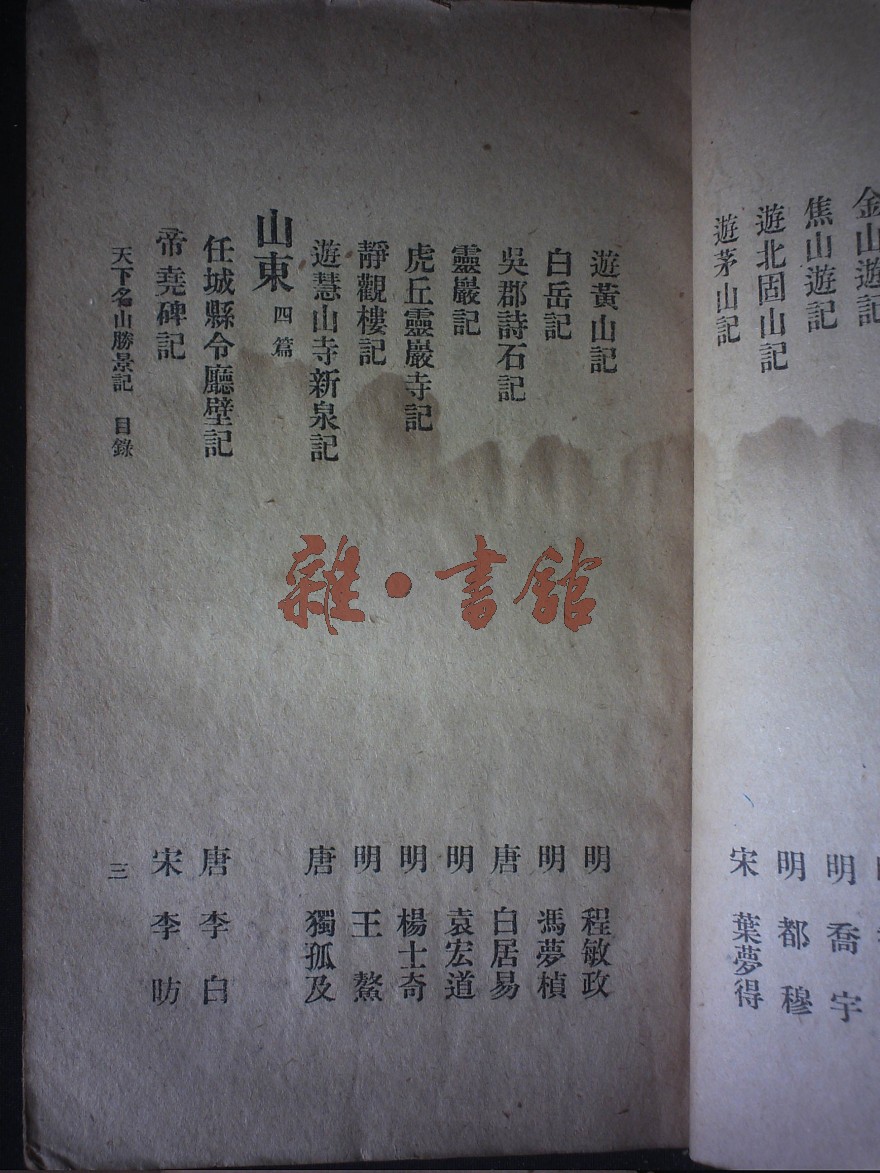 金山遊記
焦山遊記
明 喬宇
遊北固山記
明 都穆
遊茅山記
宋 葉夢得
遊黃山記
明 程敏政
白岳記
明 馮夢楨
吳郡詩石記
唐 白居易
靈巖記
明 袁宏道
虎丘靈巖寺記
明 楊士奇
靜觀樓記
明 王鏊
遊慧山寺新泉記
唐 獨孤及
山東 四篇
任城縣令廳壁記
唐 李白
帝堯碑記
宋 李昉
天下名山勝景記 目錄
三
雜·書館